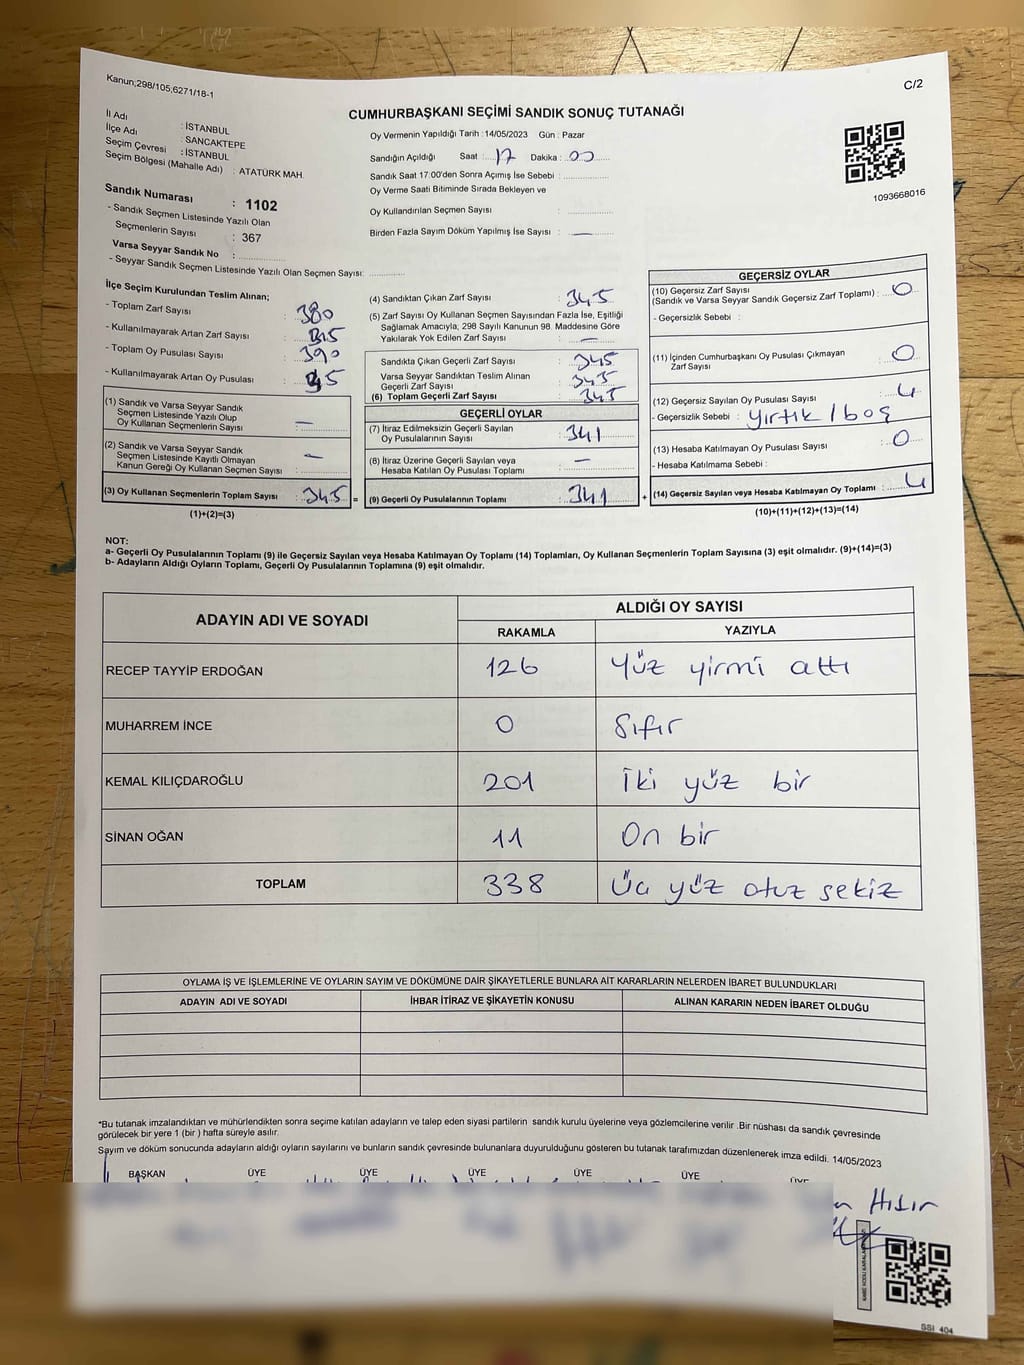 Kanun;298/105,6271/18-1
C/2
CUMHURBAŞKANI SEÇİMİ SANDIK SONUÇ TUTANAĞI
İl Adı : İSTANBUL
İlçe Adı : SANCAKTEPE
Seçim Çevresi : İSTANBUL
Seçim Bölgesi (Mahalle Adı) : ATATÜRK MAH.
Sandık Numarası : 1102
- Sandık Seçmen Listesinde Yazılı Olan
Seçmenlerin Sayısı : 367
Varsa Seyyar Sandık No :
- Seyyar Sandık Seçmen Listesinde Yazılı Olan Seçmen Sayısı:
Oy Vermenin Yapıldığı Tarih :14/05/2023 Gün : Pazar
Sandığın Açıldığı Saat : 17 Dakika : 00
Sandık Saat 17:00'den Sonra Açımış İse Sebebi :
Oy Verme Saati Bitiminde Sırada Bekleyen ve
Oy Kullandırılan Seçmen Sayısı :
Birden Fazla Sayım Döküm Yapılmış İse Sayısı : —
1093668016
İlçe Seçim Kurulundan Teslim Alınan;
- Toplam Zarf Sayısı : 380
- Kullanılmayarak Artan Zarf Sayısı :
- Toplam Oy Pusulası Sayısı : 390
- Kullanılmayarak Artan Oy Pusulası :
(1) Sandık ve Varsa Seyyar Sandık
Seçmen Listesinde Yazılı Olup
Oy Kullanan Seçmenlerin Sayısı : —
(2) Sandık ve Varsa Seyyar Sandık
Seçmen Listesinde Kayıtlı Olmayan
Kanun Gereği Oy Kullanan Seçmen Sayısı : —
(3) Oy Kullanan Seçmenlerin Toplam Sayısı : 345 =
(1)+(2)=(3)
(4) Sandıktan Çıkan Zarf Sayısı : 345
(5) Zarf Sayısı Oy Kullanan Seçmen Sayısından Fazla İse, Eşitliği
Sağlamak Amacıyla; 298 Sayılı Kanunun 98. Maddesine Göre
Yakılarak Yok Edilen Zarf Sayısı : —
Sandıkta Çıkan Geçerli Zarf Sayısı : 345
Varsa Seyyar Sandıktan Teslim Alınan
Geçerli Zarf Sayısı : 345
(6) Toplam Geçerli Zarf Sayısı : 345
GEÇERLİ OYLAR
(7) İtiraz Edilmeksizin Geçerli Sayılan
Oy Pusulalarının Sayısı : 341
(8) İtiraz Üzerine Geçerli Sayılan veya
Hesaba Katılan Oy Pusulası Toplamı : —
(9) Geçerli Oy Pusulalarının Toplamı : 341 +
GEÇERSİZ OYLAR
(10) Geçersiz Zarf Sayısı
(Sandık ve Varsa Seyyar Sandık Geçersiz Zarf Toplamı) : 0
- Geçersizlik Sebebi :
(11) İçinden Cumhurbaşkanı Oy Pusulası Çıkmayan
Zarf Sayısı : 0
(12) Geçersiz Sayılan Oy Pusulası Sayısı : 4
- Geçersizlik Sebebi : yırtık / boş
(13) Hesaba Katılmayan Oy Pusulası Sayısı : 0
- Hesaba Katılmama Sebebi :
(14) Geçersiz Sayılan veya Hesaba Katılmayan Oy Toplamı : 4
(10)+(11)+(12)+(13)=(14)
NOT:
a- Geçerli Oy Pusulalarının Toplamı (9) ile Geçersiz Sayılan veya Hesaba Katılmayan Oy Toplamı (14) Toplamları, Oy Kullanan Seçmenlerin Toplam Sayısına (3) eşit olmalıdır. (9)+(14)=(3)
b- Adayların Aldığı Oyların Toplamı, Geçerli Oy Pusulalarının Toplamına (9) eşit olmalıdır.
ADAYIN ADI VE SOYADI ALDIĞI OY SAYISI
RAKAMLA YAZIYLA
RECEP TAYYİP ERDOĞAN 126 Yüz yirmi altı
MUHARREM İNCE 0 Sıfır
KEMAL KILIÇDAROĞLU 201 İki yüz bir
SİNAN OĞAN 11 On bir
TOPLAM 338 Üç yüz otuz sekiz
OYLAMA İŞ VE İŞLEMLERİNE VE OYLARIN SAYIM VE DÖKÜMÜNE DAİR ŞİKAYETLERLE BUNLARA AİT KARARLARIN NELERDEN İBARET BULUNDUKLARI
ADAYIN ADI VE SOYADI İHBAR İTİRAZ VE ŞİKAYETİN KONUSU ALINAN KARARIN NEDEN İBARET OLDUĞU
*Bu tutanak imzalandıktan ve mühürlendikten sonra seçime katılan adayların ve talep eden siyasi partilerin sandık kurulu üyelerine veya gözlemcilerine verilir .Bir nüshası da sandık çevresinde
görülecek bir yere 1 (bir ) hafta süreyle asılır.
Sayım ve döküm sonucunda adayların aldığı oyların sayılarını ve bunların sandık çevresinde bulunanlara duyurulduğunu gösteren bu tutanak tarafımızdan düzenlenerek imza edildi. 14/05/2023
BAŞKAN ÜYE ÜYE ÜYE ÜYE ÜYE ÜYE
Hısır
SSI 404